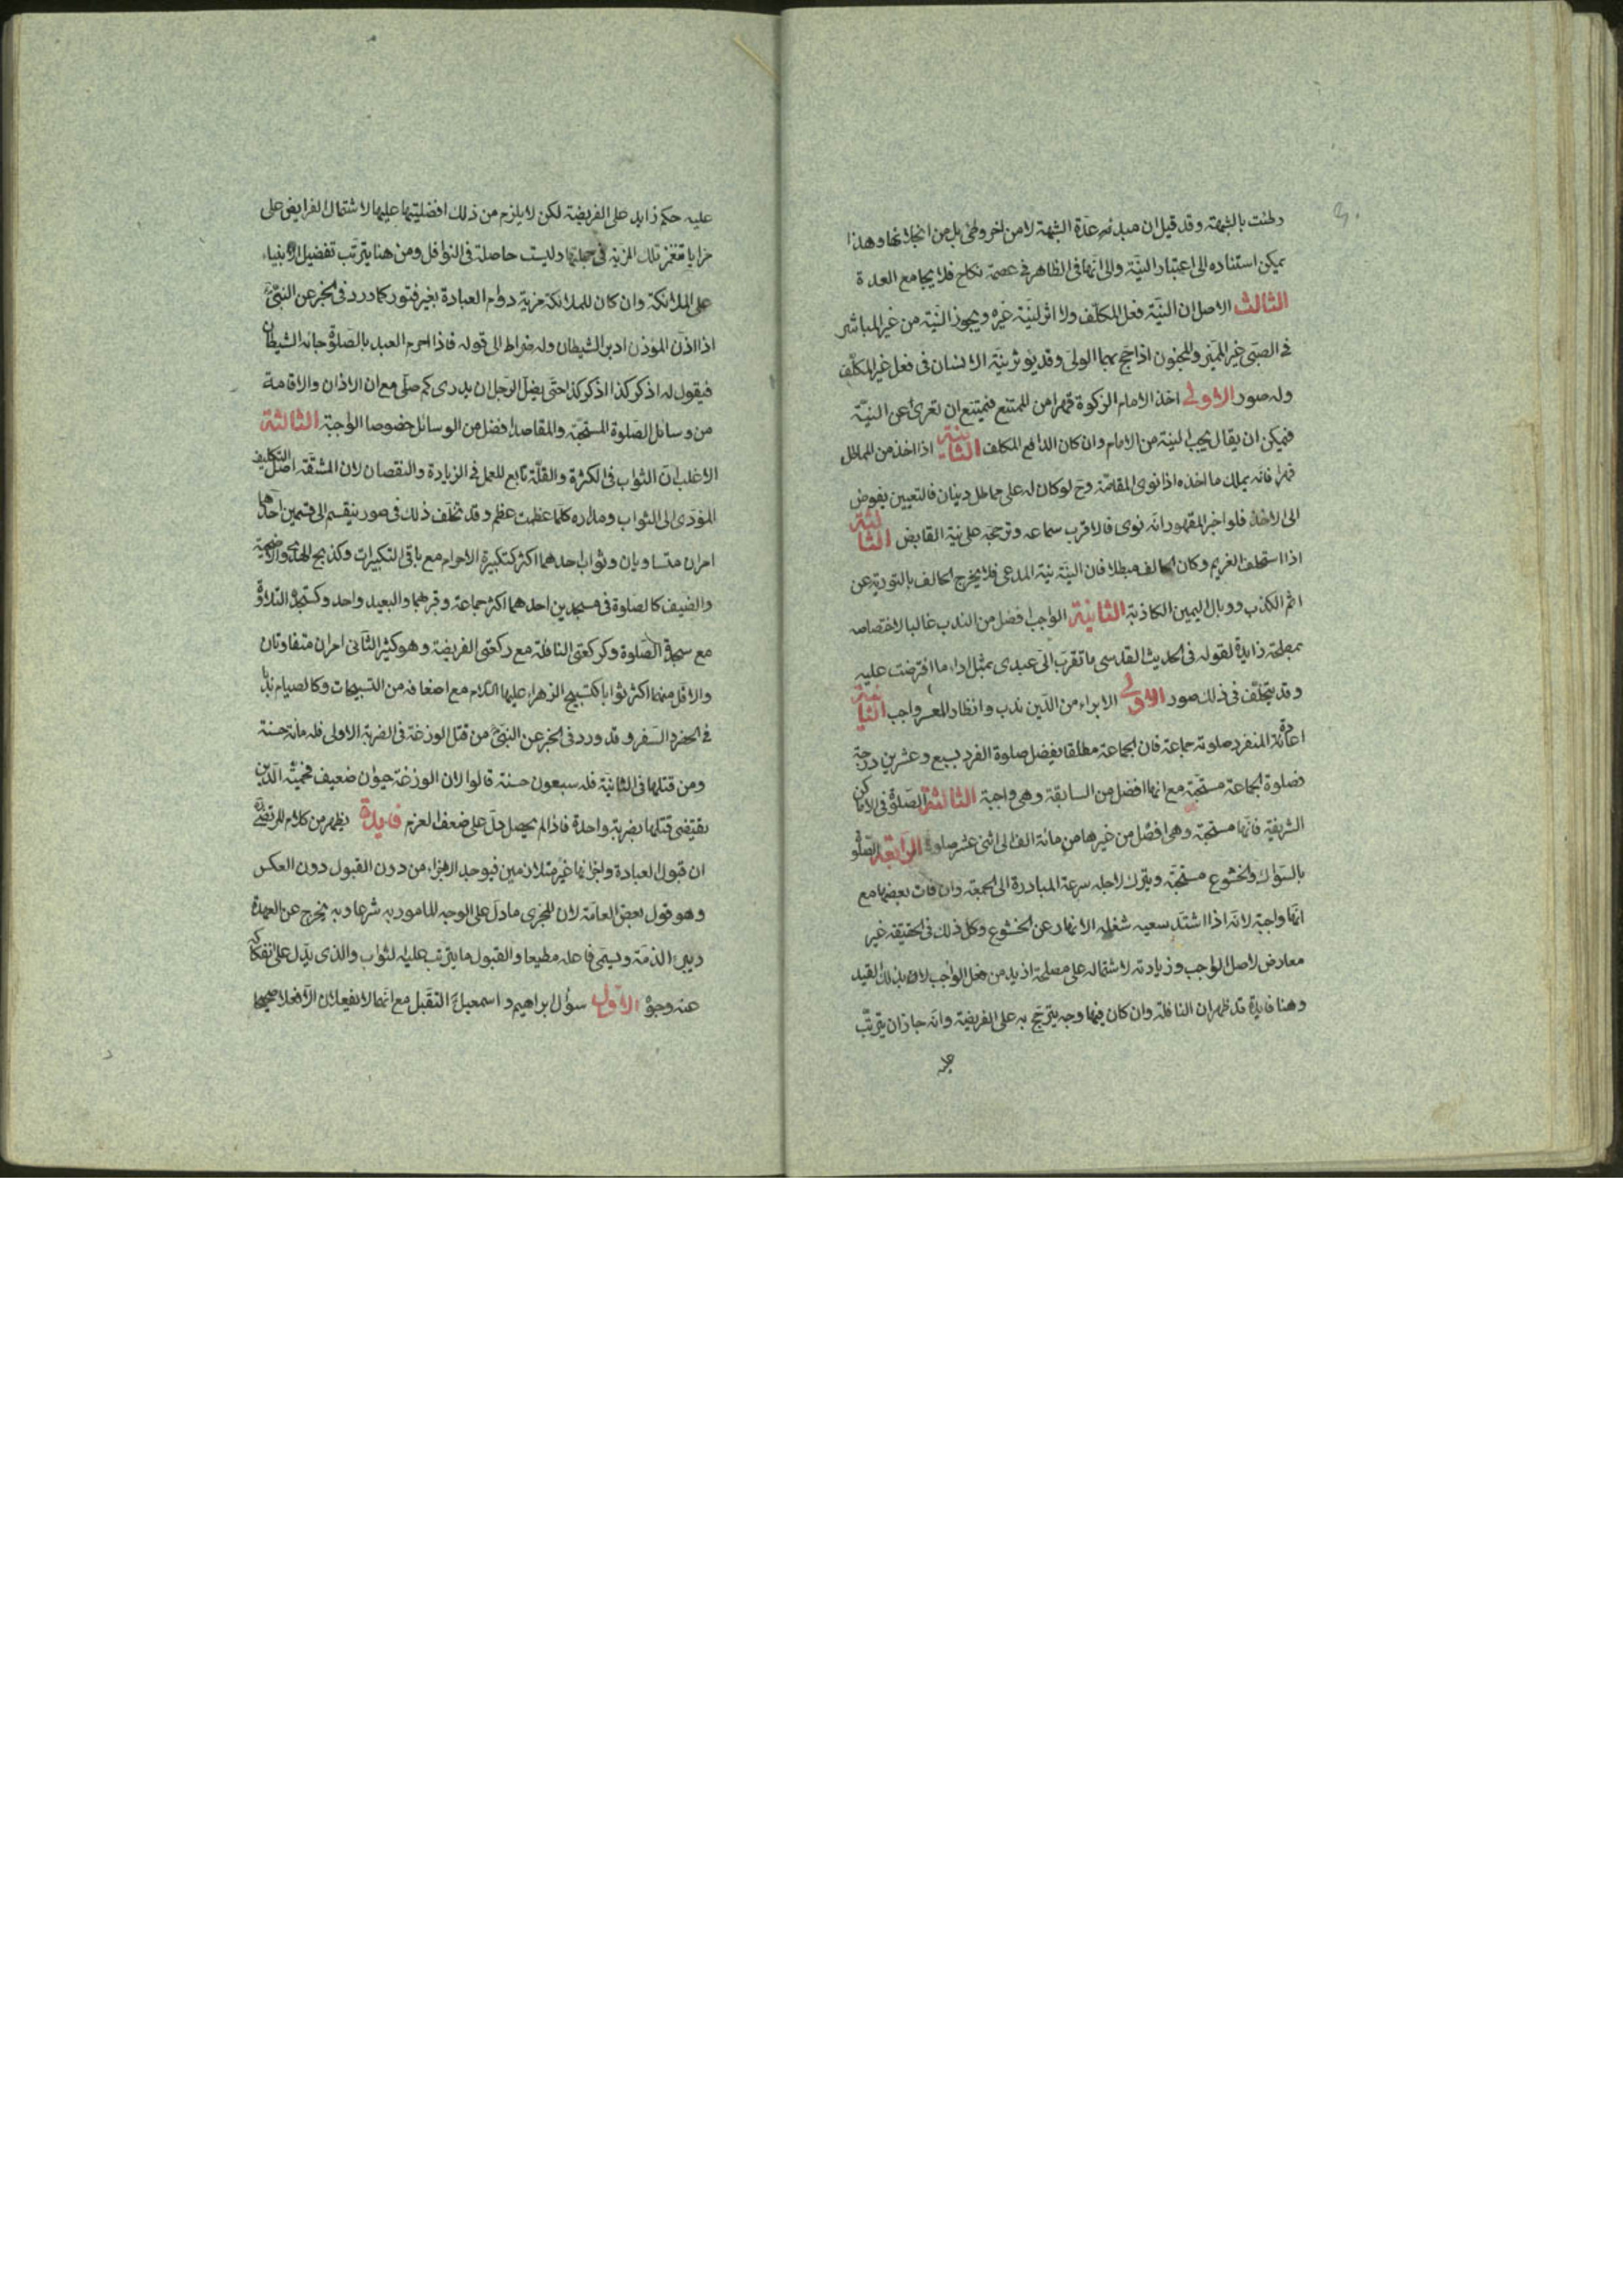 وطئت بالشبهة وقد قيل ان مبدئه عدة الشبهة لا من اخر وطئ بل من انجلائها وهذا
يمكن استناده الى اعتبار النيّة والى انّها فى الظاهر فى عصمة نكاح فلا يجامع العدة
الثالث الاصل ان النيّة فعل المكلّف ولا اثر لنيّة غيره ويجوز النيّة من غير المباشر
فى الصبّى غير المميّز والمجنون اذا حج بهما الولى وقد يؤثر نيّة الانسان فى فعل غير المكلّف
وله صور الاولى اخذ الامام الزكوة قهرا من الممتنع فيمتنع ان تعرى عن النيّة
فيمكن ان يقال تجب النية من الامام وان كان الدافع المكلف الثانية اذا اخذ من المماطل
قهرا فانّه يملك ما اخذه اذا نوى المقاصّة وح لو كان له على مماطل دينان فالتعيين يفوض
الى الاخذ فلو اخبر المقهور انّه نوى فالاقرب سماعه وترجّحه على نية القابض الثالثة
اذا استحلف الغريم وكان الحالف مبطلا فان النيّة نيّة المدعى فلا يخرج الحالف بالتورية عن
اثم الكذب ووبال اليمين الكاذبة الثانية الواجب افضل من الندب غالبا لاختصاصه
بمصلحة زايدة لقوله فى الحديث القدسى ما تقرب الىّ عبدى بمثل اداء ما افترضت عليه
وقد يتخلّف فى ذلك صور الاولى الابراء من الدّين ندب وانظار المعسر واجب الثانية
اعادة المنفرد صلوته جماعة فان الجماعة مطلقا يفضل صلوة الفرد بسبع وعشرين درجة
فصلوة الجماعة مستحبّة مع انها افضل من السابقة وهى واجبة الثالثة الصلوة فى الاماكن
الشريفة فانّها مستحبّة وهى افضل من غيرها من مائة الف الى اثنى عشر صلوة الرابعة الصلوة
بالسّواك والخشوع مستحبّة ويترك لاجله سرعة المبادرة الى الجمعة وان فات بعضها مع
انّها واجبة لانّه اذا اشتد سعيه شغله الانهار عن الخشوع وكل ذلك فى الحقيقة غير
معارض لاصل الواجب وزيادته لاشتماله على مصلحة ازيد من فعل الواجب لا بذلك القيد
وهنا فايدة قد ظهر ان النافلة وان كان فيها وجه يترجّح به على الفريضة وانّه جاز ان يترتّب
عليه
عليه حكم زايد على الفريضة لكن لا يلزم من ذلك افضليتها عليها لاشتمال الفرايض على
مزايا تنغمر تلك المزيّة فى جملتها وليست حاصلة فى النوافل ومن هنا يترتّب تفضيل الانبياء
على الملائكة وان كان للملائكة مزية دوام العبادة بغير فتور كما ورد فى الخبر عن النبىّ
اذا اذّن المؤذن ادبر الشيطان وله ضراط الى قوله فاذا احرم العبد بالصلوة جائه الشيطان
فيقول له اذكر كذا اذكر كذا حتّى يضلّ الرّجل ان يدرى كم صلّى مع ان الاذان والاقامة
من وسائل الصلوة المستحبّة والمقاصد افضل من الوسائل خصوصا الواجبة الثالثة
الاغلب انّ الثواب فى الكثرة والقلّة تابع للعمل فى الزيادة والنقصان لان المشقّة اصل التكليف
المؤدى الى الثواب ومداره كلما عظمت عظم وقد تخلف ذلك فى صور ينقسم الى قسمين احدهما
امران متساويان وثواب احدهما اكثر كتكبيرة الاحرام مع باقى التكبيرات وكذبح الهدى والاضحية
والضيف كالصلوة فى مسجدين احدهما اكثر جماعة وقربهما والبعيد واحد وكسجدة التلاوة
مع سجدة الصلوة وكركعتى النافلة مع ركعتى الفريضة وهو كثير الثانى امران متفاوتان
والاقل منهما اكثر ثوابا كتسبيح الزهراء عليها السلام مع اضعافه من التسبيحات وكالصيام ندبا
فى الحضر والسفر وقد ورد فى الخبر عن النبىّ من قتل الوزغة فى الضربة الاولى فله مائة حسنة
ومن قتلها فى الثانية فله سبعون حسنة قالوا لان الوزغة حيوان ضعيف فحميّة الدّين
يقتضى قتلها بضربة واحدة فاذا لم يحصل دلّ على ضعف العزم فايدة يظهر من كلام المرتضى
ان قبول العبادة واجزائها غير متلازمين فيوجد الاجزاء من دون القبول دون العكس
وهو قول بعض العامّة لان المجزى ما دلّ على الوجه المامور به شرعا وبه يخرج عن العهدة
ويبرى الذمّة ويسمى فاعله مطيعا والقبول ما يترتب عليه الثواب والذى يدّل على انفكاكه
عنه وجوه الاول سؤال ابراهيم واسمعيل التقبل مع انّهما لا يفعلان الّا فعلا صحيحا